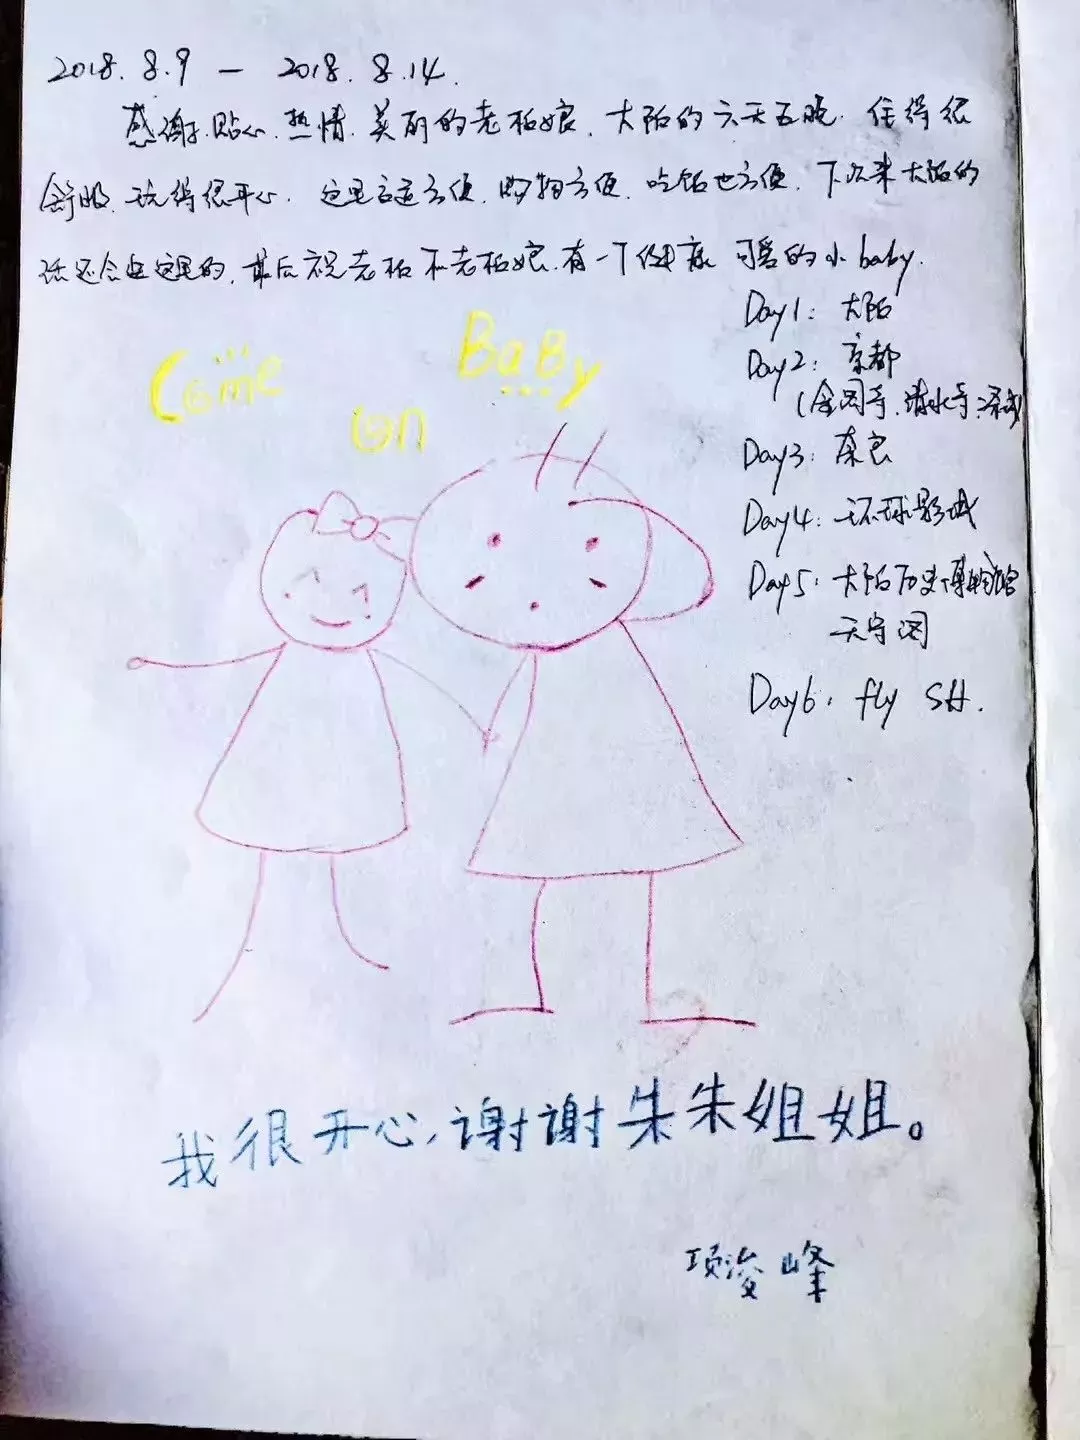 2018.8.9 — 2018.8.14.
感谢贴心、热情、美丽的老板娘、大阪的六天五晚. 住得很
舒服、玩得很开心. 这里交通方便、购物方便、吃饭也方便、下次来大阪的
话还会住这里的、最后祝老板和老板娘、有一个健康 可爱的小baby.
Come on BaBy
Day1: 大阪
Day2: 京都
(金阁寺、清水寺、
Day3: 奈良
Day4: 环球影城
Day5: 大阪历史博物馆
天守阁
Day6: fly SH.
我很开心,谢谢朱朱姐姐。
项浚峰